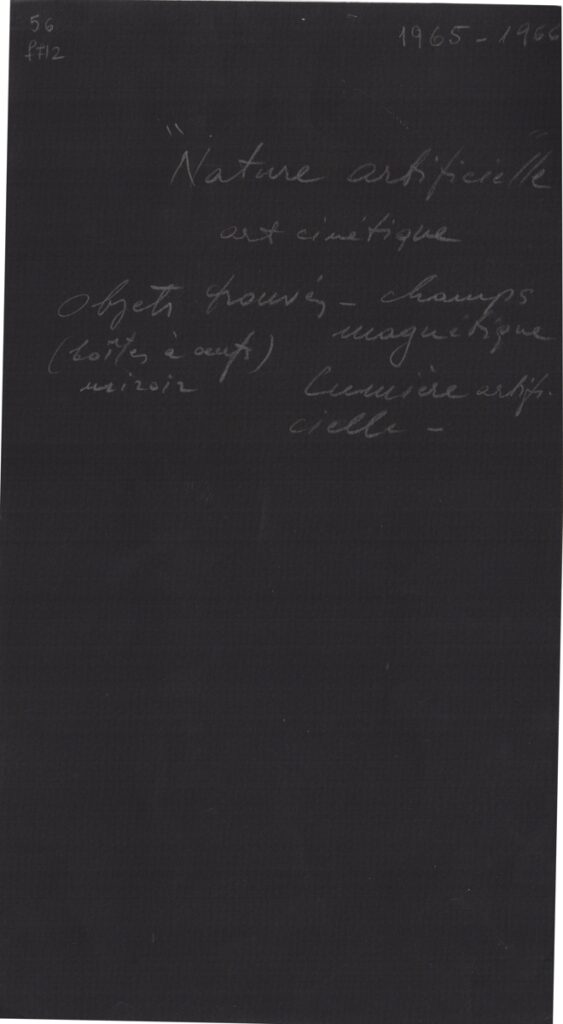 56
1965-1966
"Nature artificielle"
art cinétique
Objets trouvés - champs
(boîtes à œufs) magnétique
miroir Lumière artifi-
cielle -